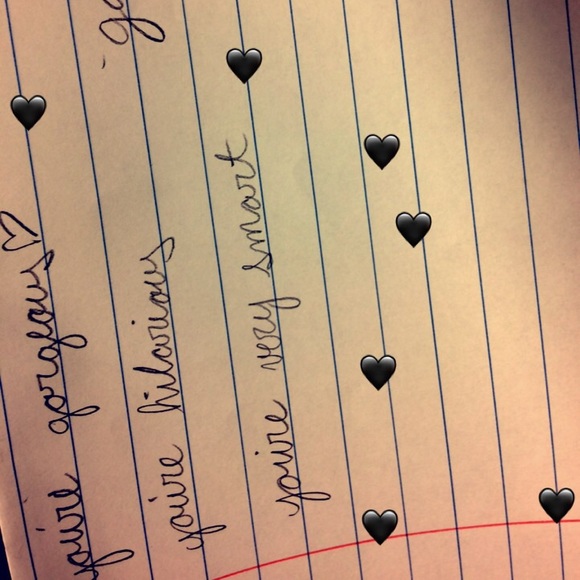 you're gorgeous♡
you're hilarious
you're very smart